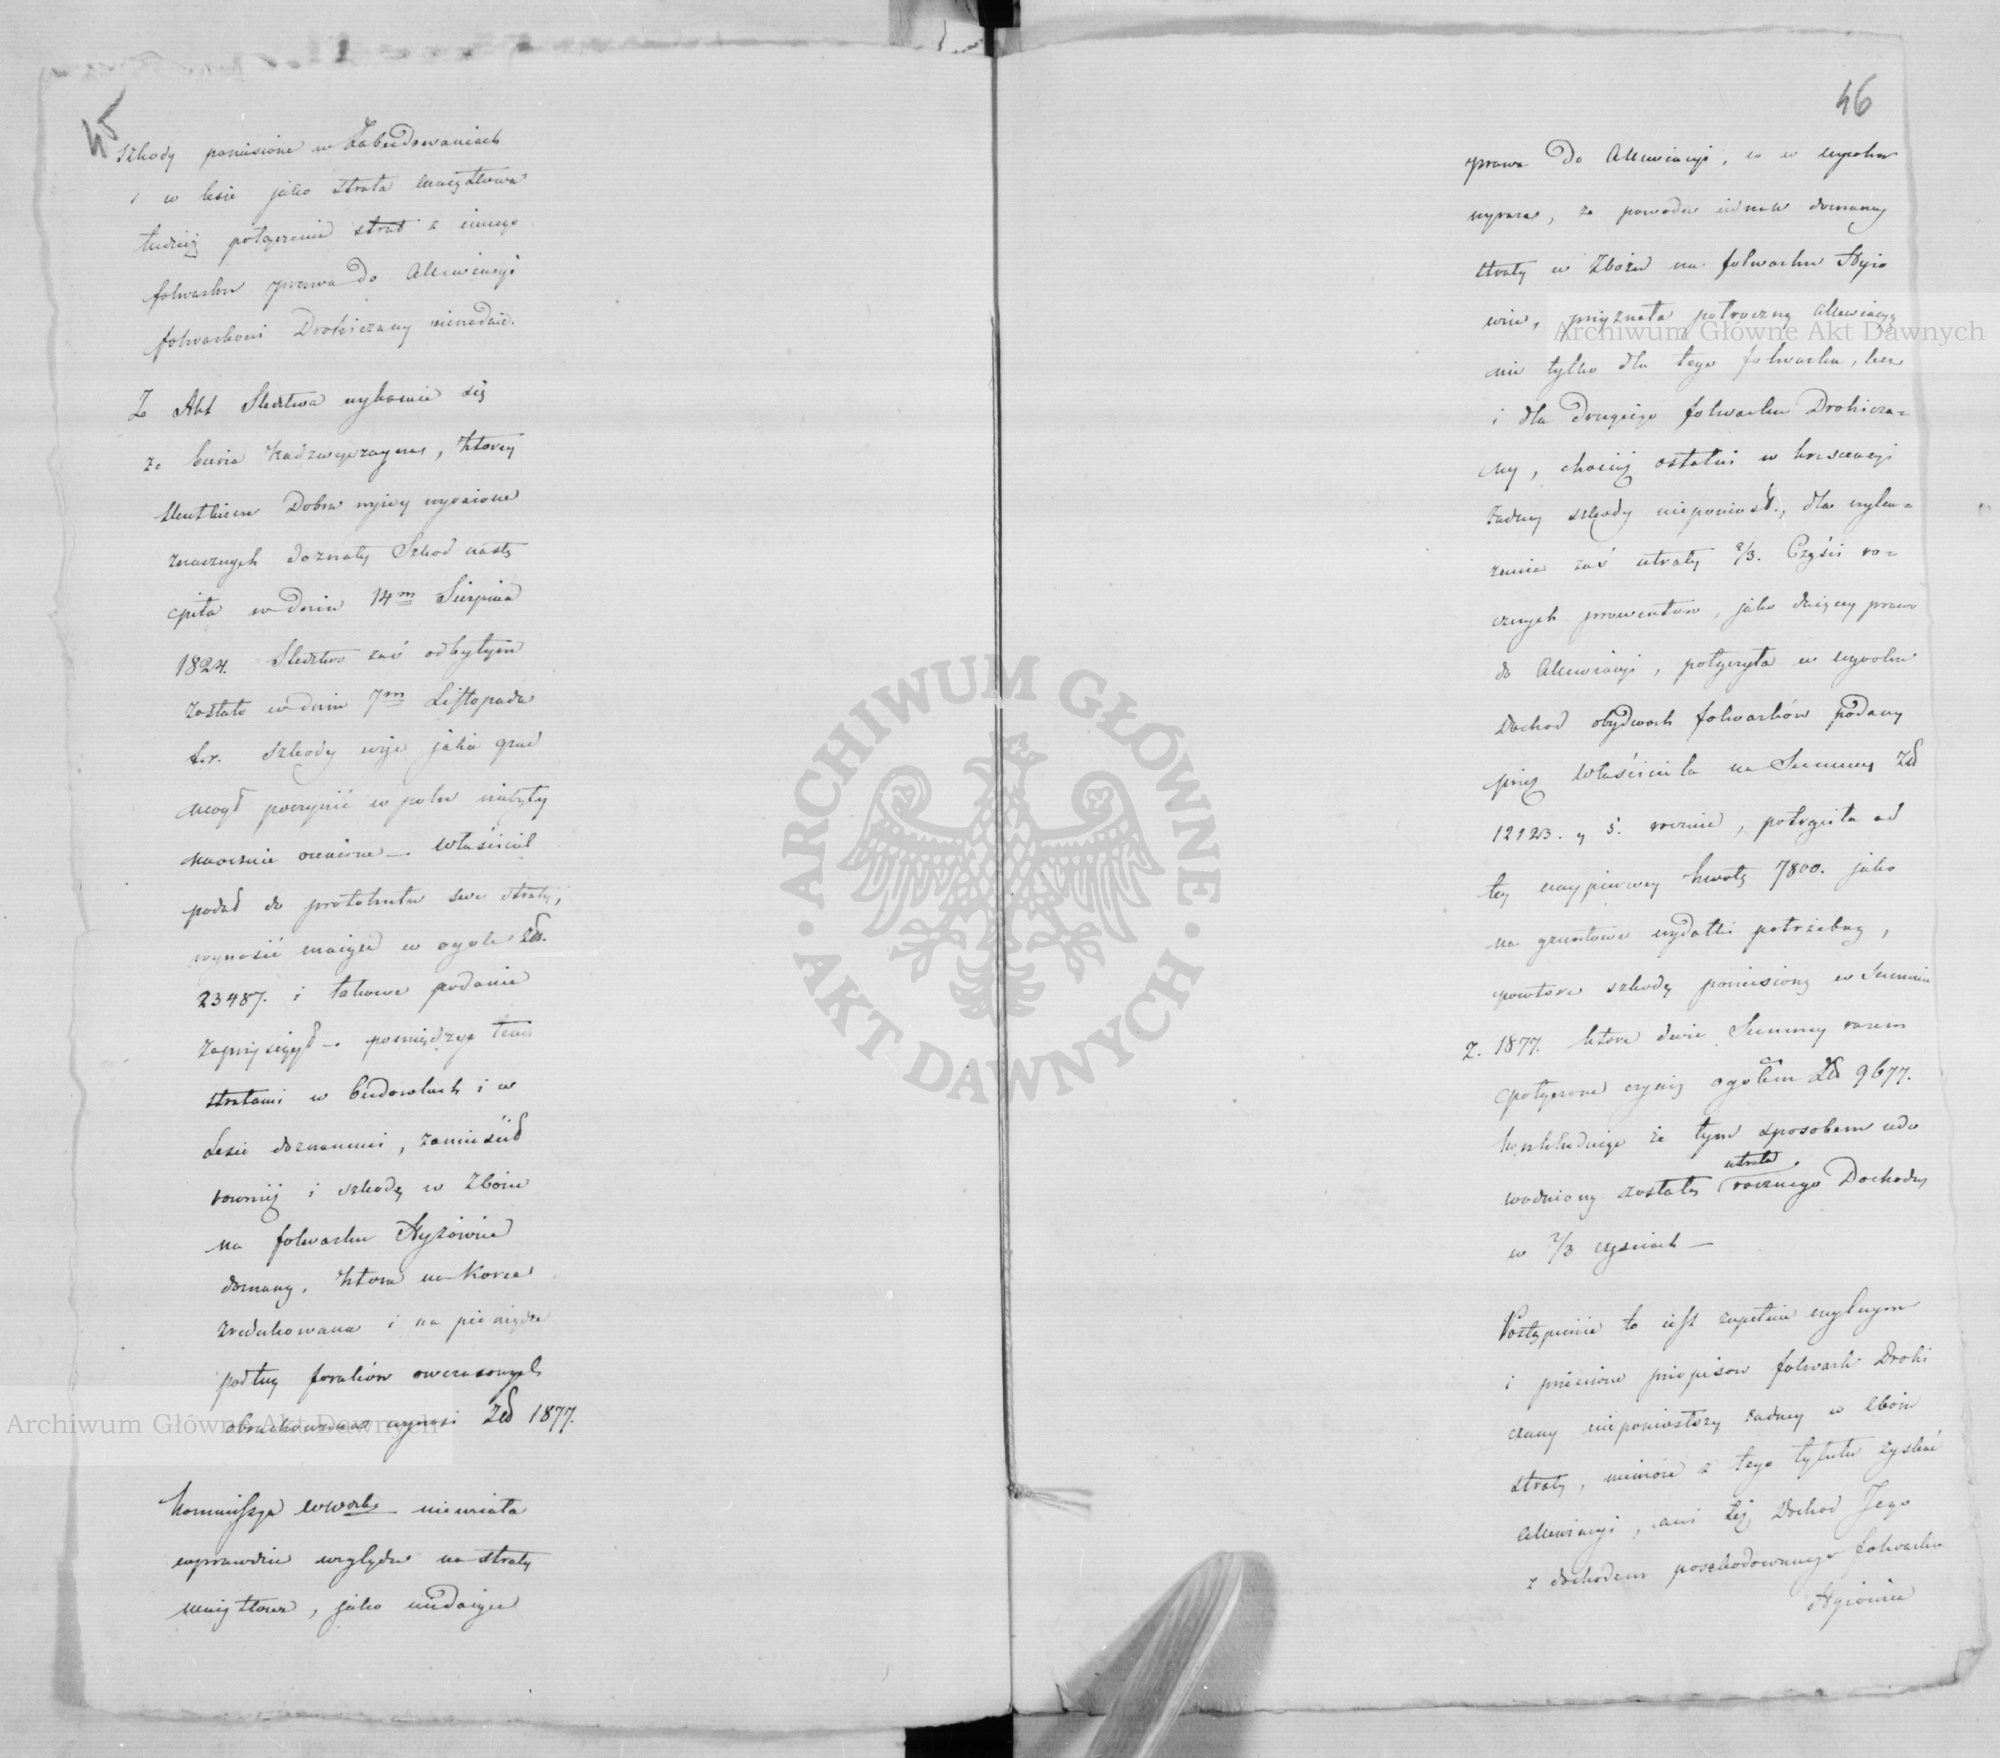 45
Szkody poniesione w Zabudowaniach
i w lesie jako strata maiątkowa
tudzież połączenie strat z innego
folwarku prawa do Allewiacyi
folwarkowi Drohiczany nienadaie.
Z Akt Sledztwa wykazuie się
że burza Nadzwyczayna, ktorey
skutkiem Dobra wyżey wyrażone
znacznych doznały Szkod nastą
piła w dniu 14m Sierpnia
1824. Sledztwo zaś odbytym
zostało w dniu 7m Listopada
t.r. Szkody więc jakie grad
mogł poczynić w polu niebyły
naocznie ocenione — Właściciel
podał do protokułu swe straty,
wynosić maiące w ogole Złł.
23487. i takowe podanie
zaprzysiągł — pomiędzy temi
stratami w budowlach i w
Lesie doznanemi, zamieścił
rownież i szkodę w Zbożu
na folwarku Hyżowie
doznaną, ktora na Korce
zredukowana i na pieniądze
podług foraliów owczasowych
obrachowana wynosi Złł 1877.
Kommissya Wwodz. niemiała
wprawdzie względu na straty
maiątkowe, jako niedaiące
46
prawa do Allewiacyi, co w wywodzie
wyraża, z powodu iednak doznaney
straty w Zbożu na folwarku Hyżo
wie, przyznała połroczną Allewiacyą
nie tylko dla tego folwarku, lecz
i dla drugiego folwarku Drohicza=
ny, chociaż ostatni w krescencyi
żadney szkody nieponiosł, dla wyka=
zania zaś utraty 2/3. Części ro=
cznych prowentow, jako daiącey prawo
do Allewiacyi, połączyła w wywodzie
Dochod obydwoch folwarków podany
przez Właściciela na Summę Złł
12123. g 5. rocznie, potrąciła od
tey naypierwey kwotę 7800. jako
na gruntowe wydatki potrzebną,
powtore szkodę poniesioną w Summie
z. 1877. ktore dwie Summy razem
połączone czynią ogołem Złł 9677.
konkluduiąc że tym sposobem udo
wodnioną została utrata rocznego Dochodu
w 2/3 częściach —
Postąpienie to iest zupełnie mylnym
i przeciwne przepisom folwark Drohi
czany nieponiosłszy żadney w Zbożu
straty, niemoże z tego tytułu zyskać
Allewiacyi, ani też Dochod Jego
z dochodem poszkodowanego folwarku
Hyżowie
Archiwum Główne Akt Dawnych
Archiwum Główne Akt Dawnych
ARCHIWUM GŁÓWNE · AKT DAWNYCH ·